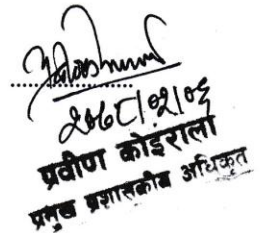 २०७८/०२/०६
प्रवीण कोइराला
प्रमुख प्रशासकीय अधिकृत